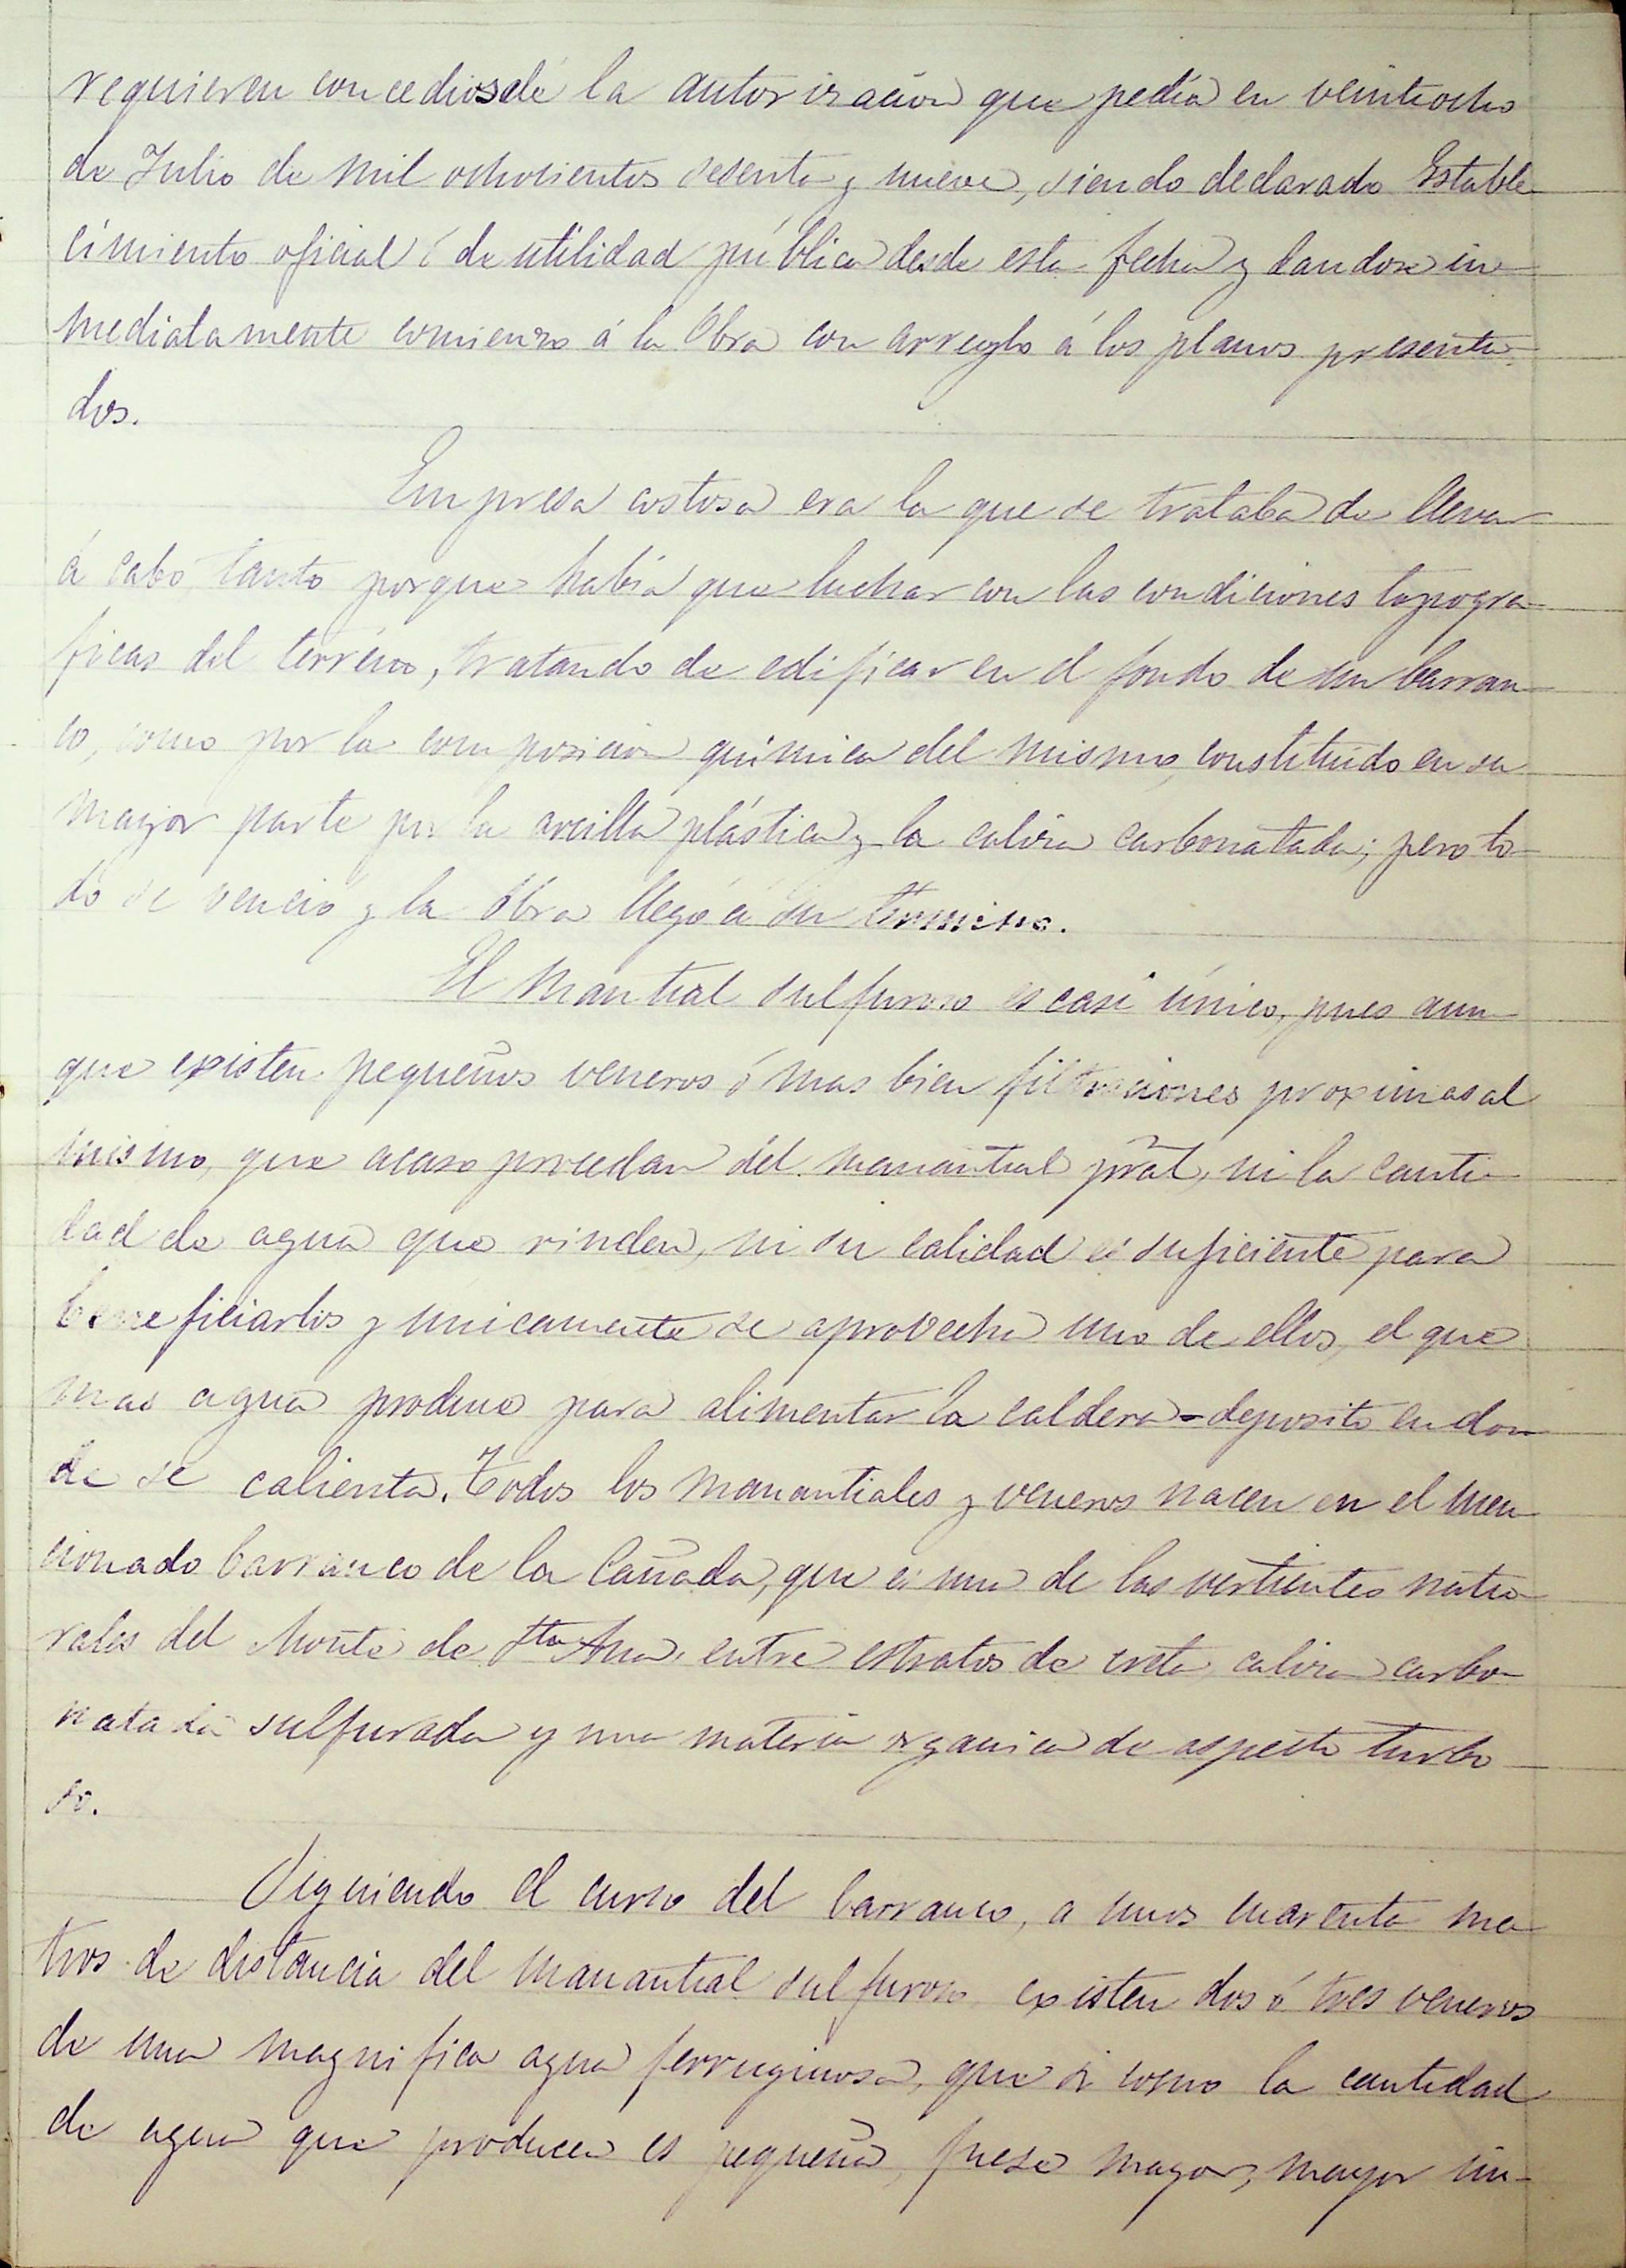 requieren concediosele la autorización que pedía en veintiocho
de Julio de mil ochocientos sesenta y nueve, siendo declarado Estable-
cimiento oficial ó de utilidad pública desde esta fecha y dandose in-
mediatamente comienzo á la obra con arreglo á los planos presenta-
dos.
Empresa costosa era la que se trataba de llevar
á cabo tanto porque había que luchar con las condiciones topogra-
ficas del terreno, tratando de edificar en el fondo de un barran-
co, como por la composición química del mismo, constituido en su
mayor parte por la arcilla plástica y la caliza carbonatada; pero to-
do se venció y la obra llegó á su término.
El mantial sulfuroso es casi único, pues aun-
que existen pequeños veneros ó mas bien filtraciones proximas al
mismo, que acaso procedan del manantial pral, ni la canti-
dad de agua que rinden, ni su calidad es suficiente para
beneficiarlos y unicamente se aprovecha uno de ellos, el que
mas agua produce para alimentar la caldera-deposito en don-
de se calienta. Todos los manantiales y veneros nacen en el men-
cionado barranco de la Cañada, que es una de las vertientes natu-
rales del Monte de Sta Ana, entre estratos de creta, caliza carbo-
natada sulfurada y una materia organica de aspecto turbo-
so.
Siguiendo el curso del barranco, a unos cuarenta me-
tros de distancia del manantial sulfuroso, existen dos ó tres veneros
de una magnifica agua ferruginosa, que si como la cantidad
de agua que producen es pequeña, fuese mayor, mayor im-